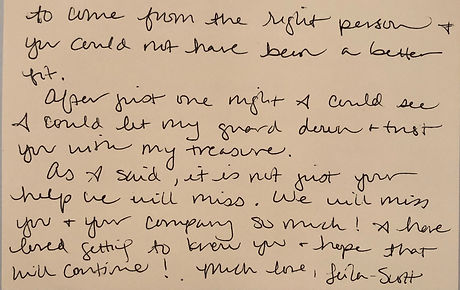 to come from the right person +
you could not have been a better
fit.
After just one night I could see
I could let my guard down + trust
you with my treasure.
As I said, it is not just your
help we will miss. We will miss
you + your company so much! I have
loved getting to know you + hope that
will continue! Much love, Leila-Scott